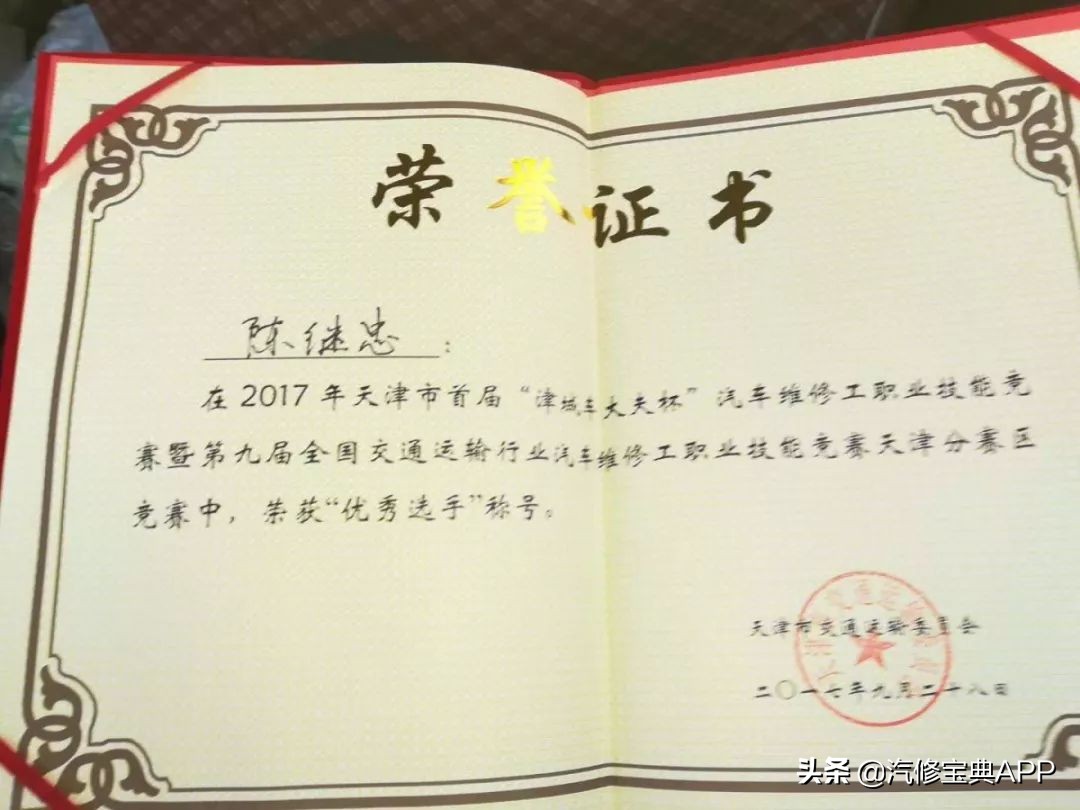 荣誉证书
陈继忠：
在2017年天津市首届“津城车大夫杯”汽车维修工职业技能竞
赛暨第九届全国交通运输行业汽车维修工职业技能竞赛天津分赛区
竞赛中，荣获“优秀选手”称号。
天津市交通运输委员会
二〇一七年九月二十八日
头条 @汽修宝典APP